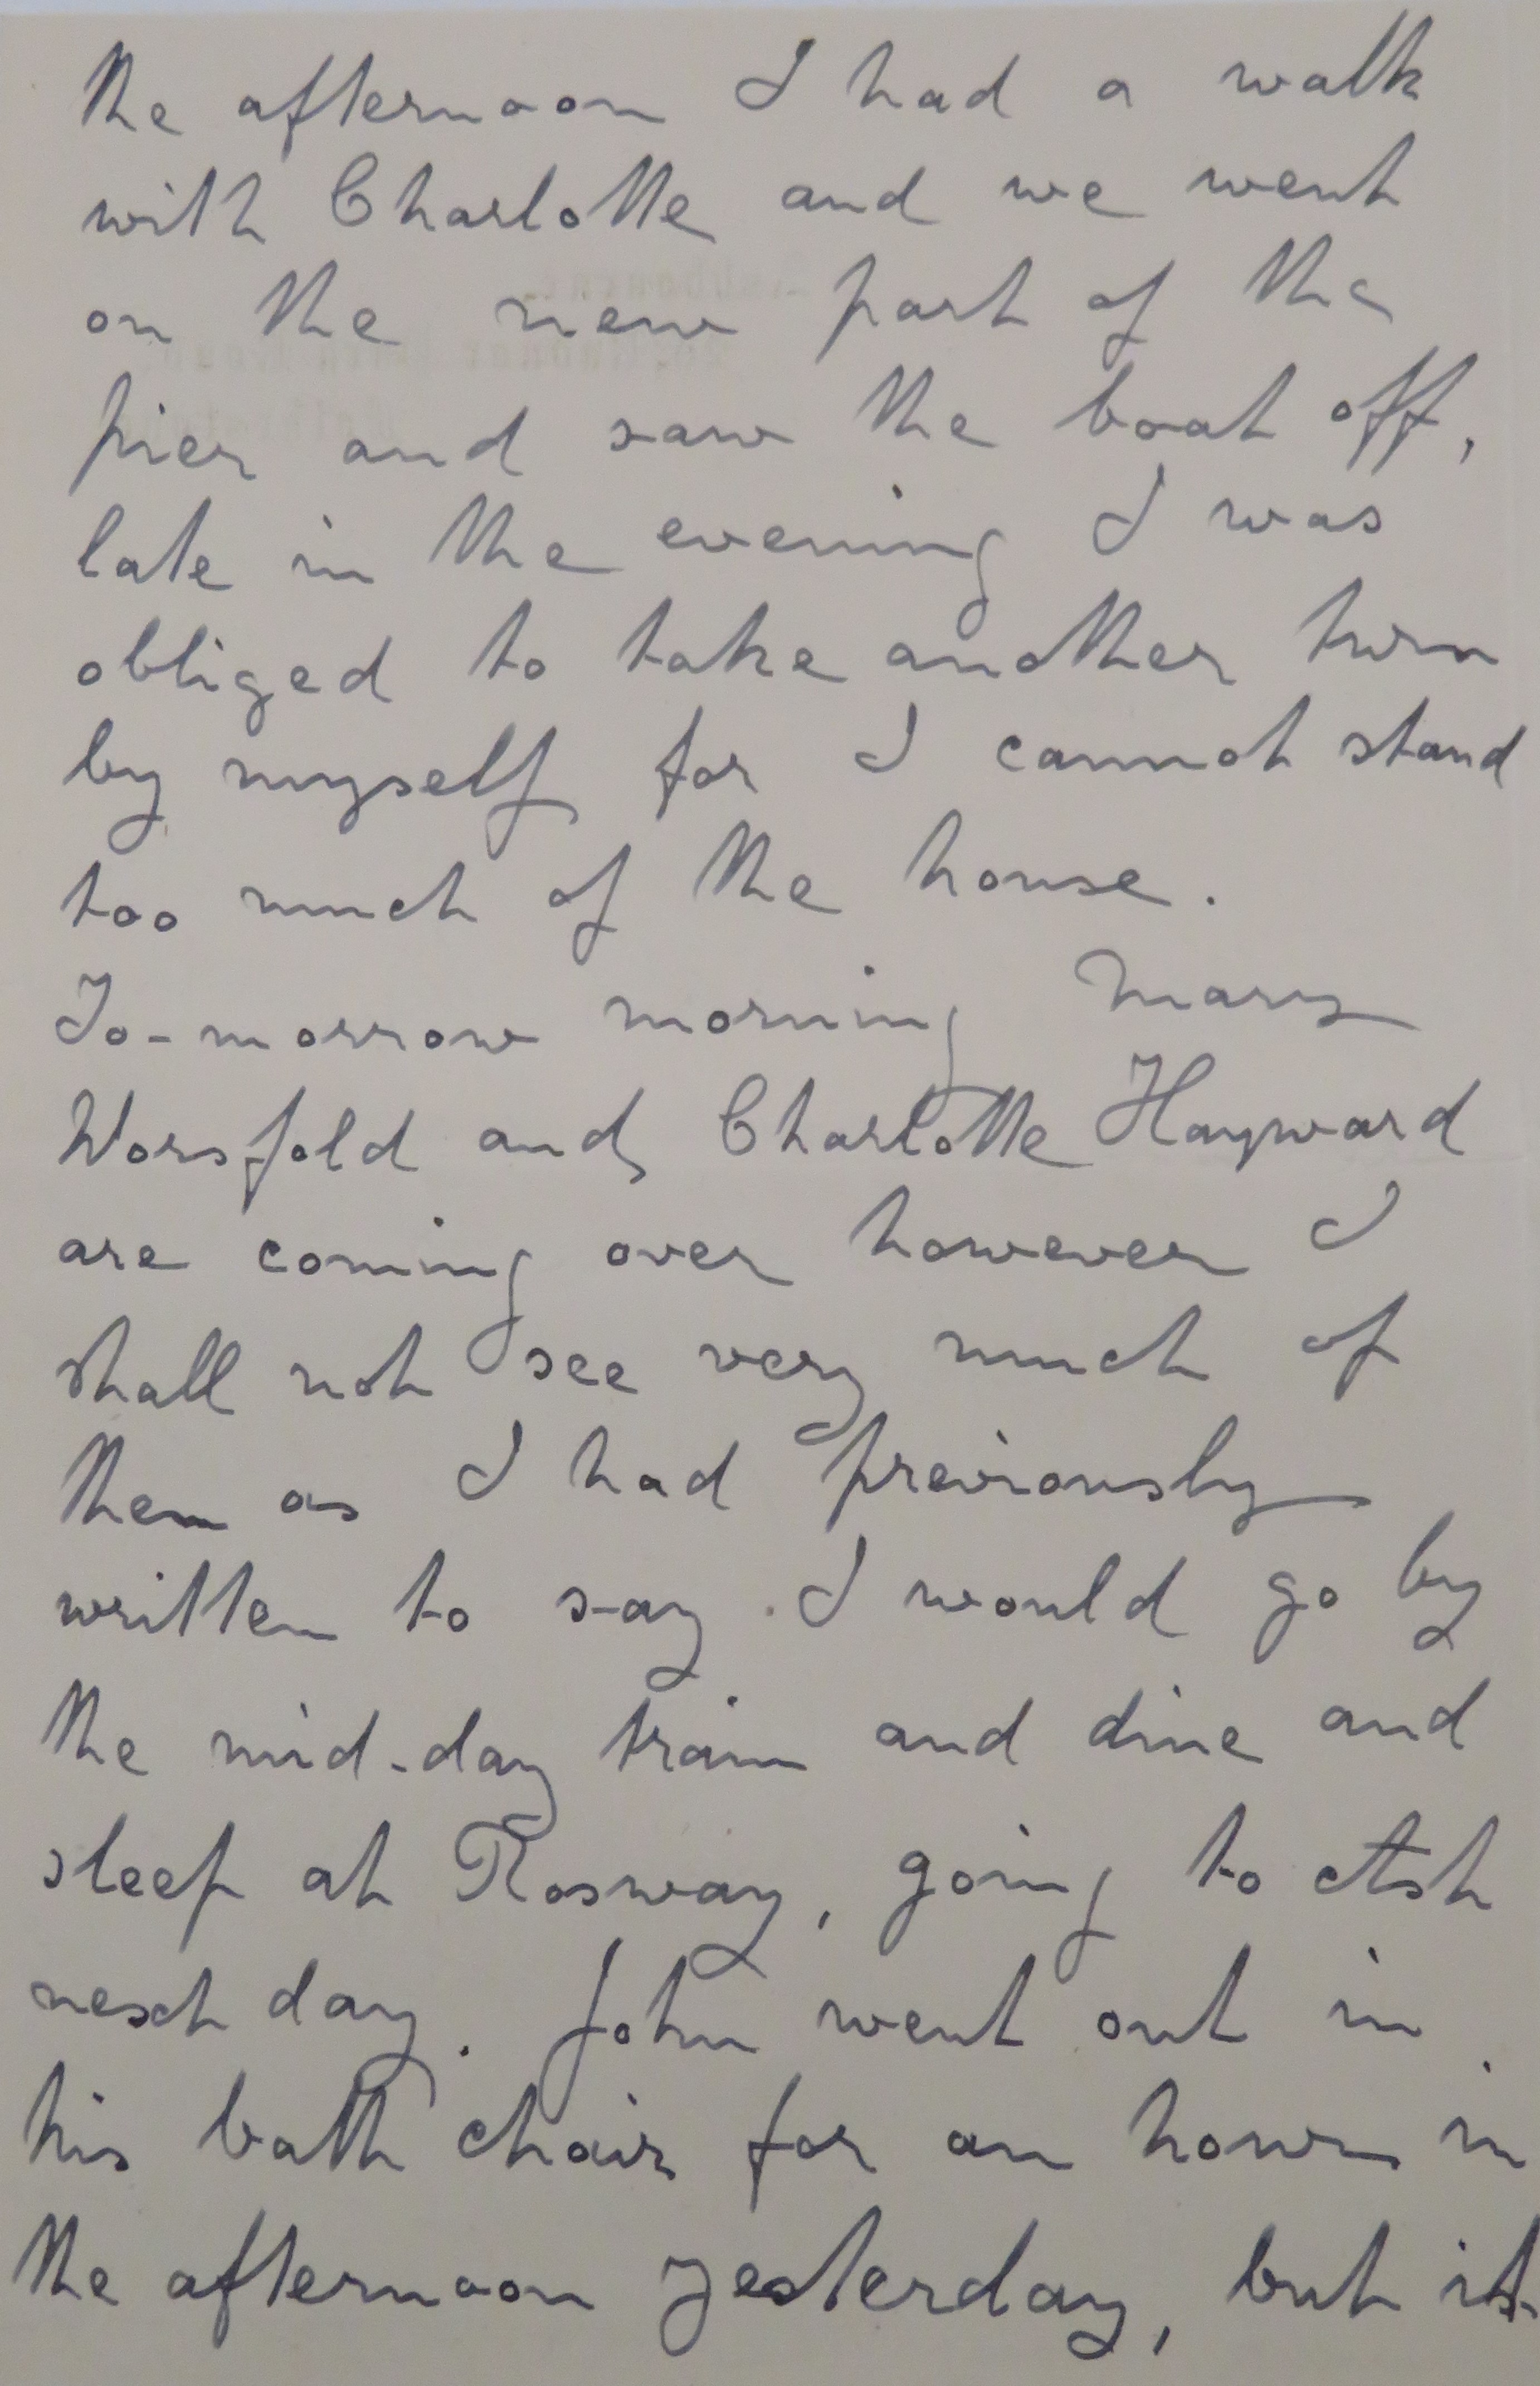 the afternoon I had a walk
with Charlotte and we went
on the new part of the
pier and saw the boat off,
late in the evening I was
obliged to take another turn
by myself for I cannot stand
too much of the house.
To-morrow morning Mary
Worsfold and Charlotte Hayward
are coming over however I
shall not see very much of
them as I had previously
written to say I would go by
the mid-day train and dine and
sleep at Rosway, going to Ash
next day. John went out in
his bath chair for an hour in
the afternoon yesterday, but it